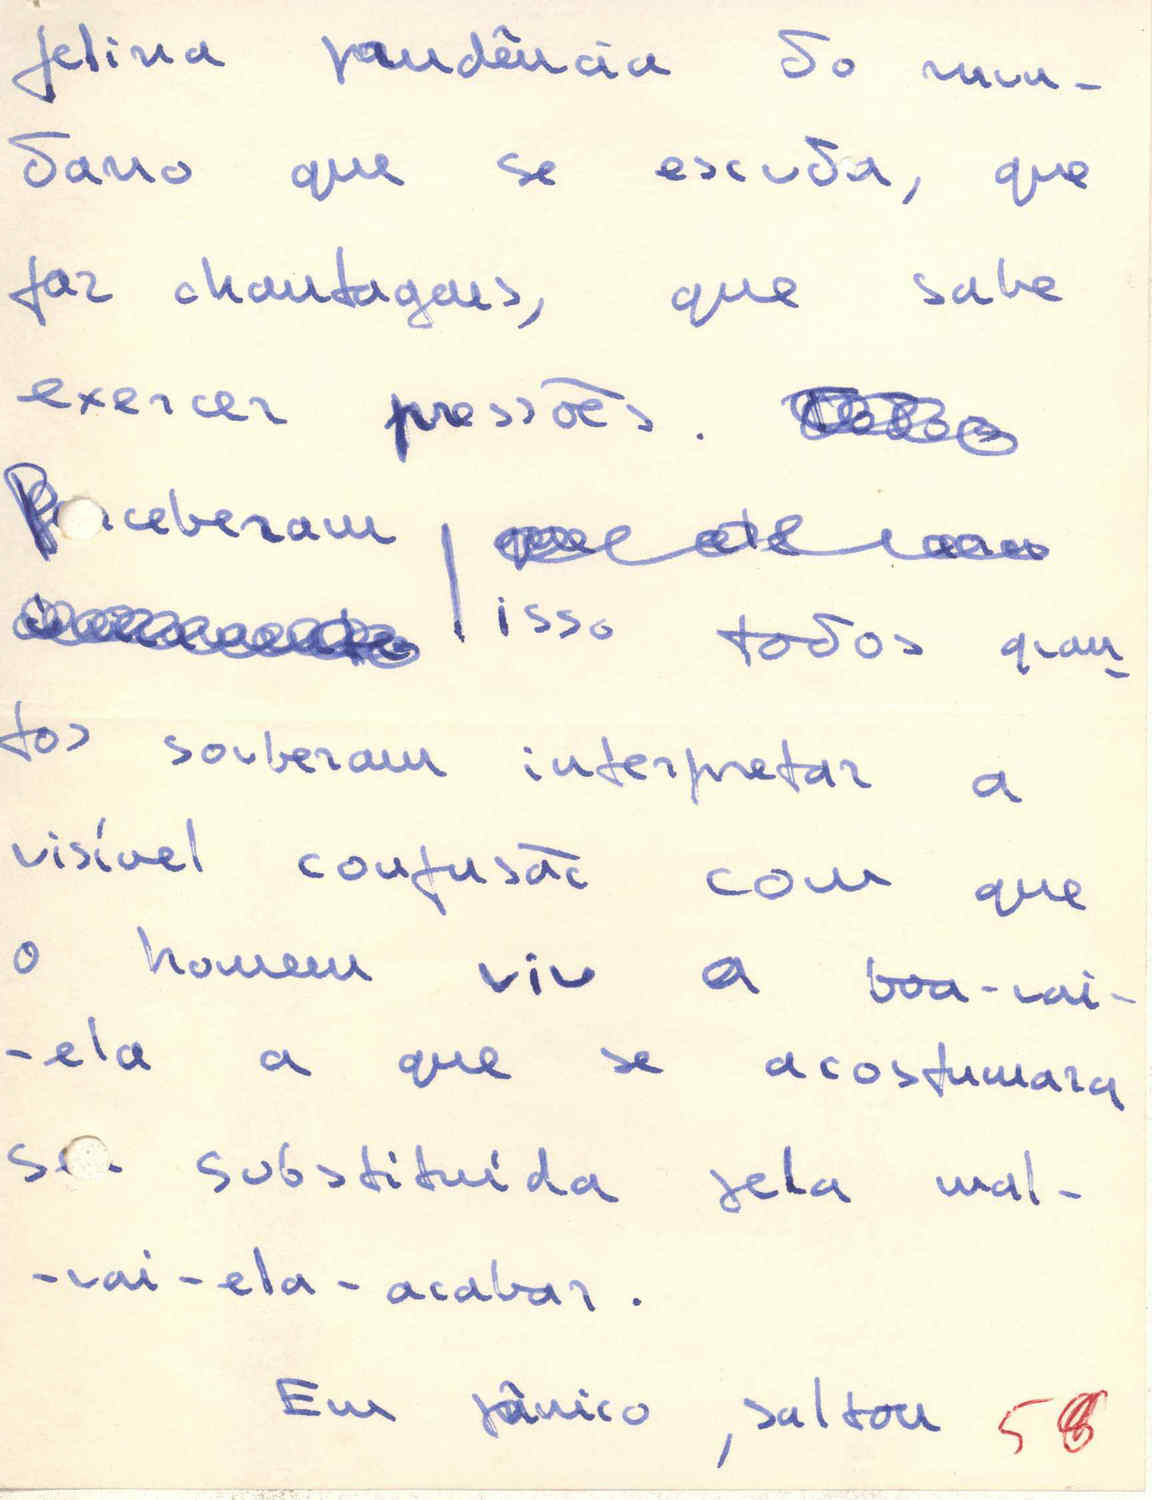 felina prudência do mun-
dano que se escuda, que
faz chantagens, que sabe
exercer pressões.
Perceberam
isso todos quan-
tos souberam interpretar a
visível confusão com que
o homem viu a boa-vai-
-ela a que se acostumara
ser substituída pela mal-
-vai-ela-acabar.
Em pânico, saltou 58